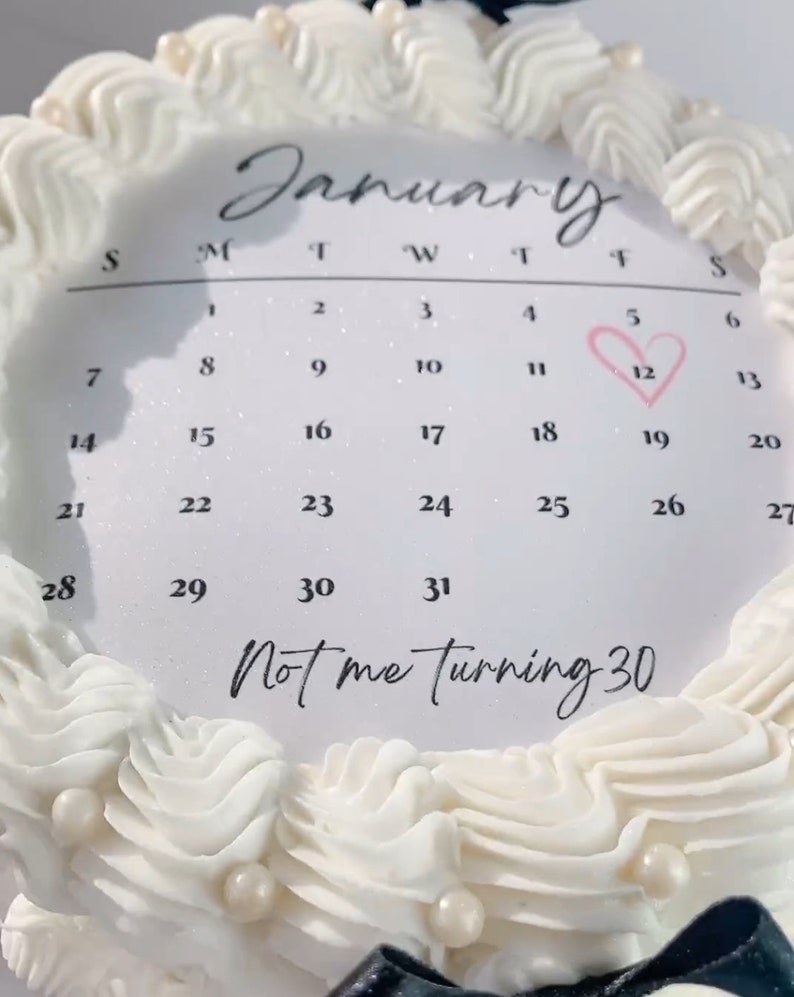 January
S M T W T F S
1 2 3 4 5 6
7 8 9 10 11 12 13
14 15 16 17 18 19 20
21 22 23 24 25 26 27
28 29 30 31
Not me turning 30